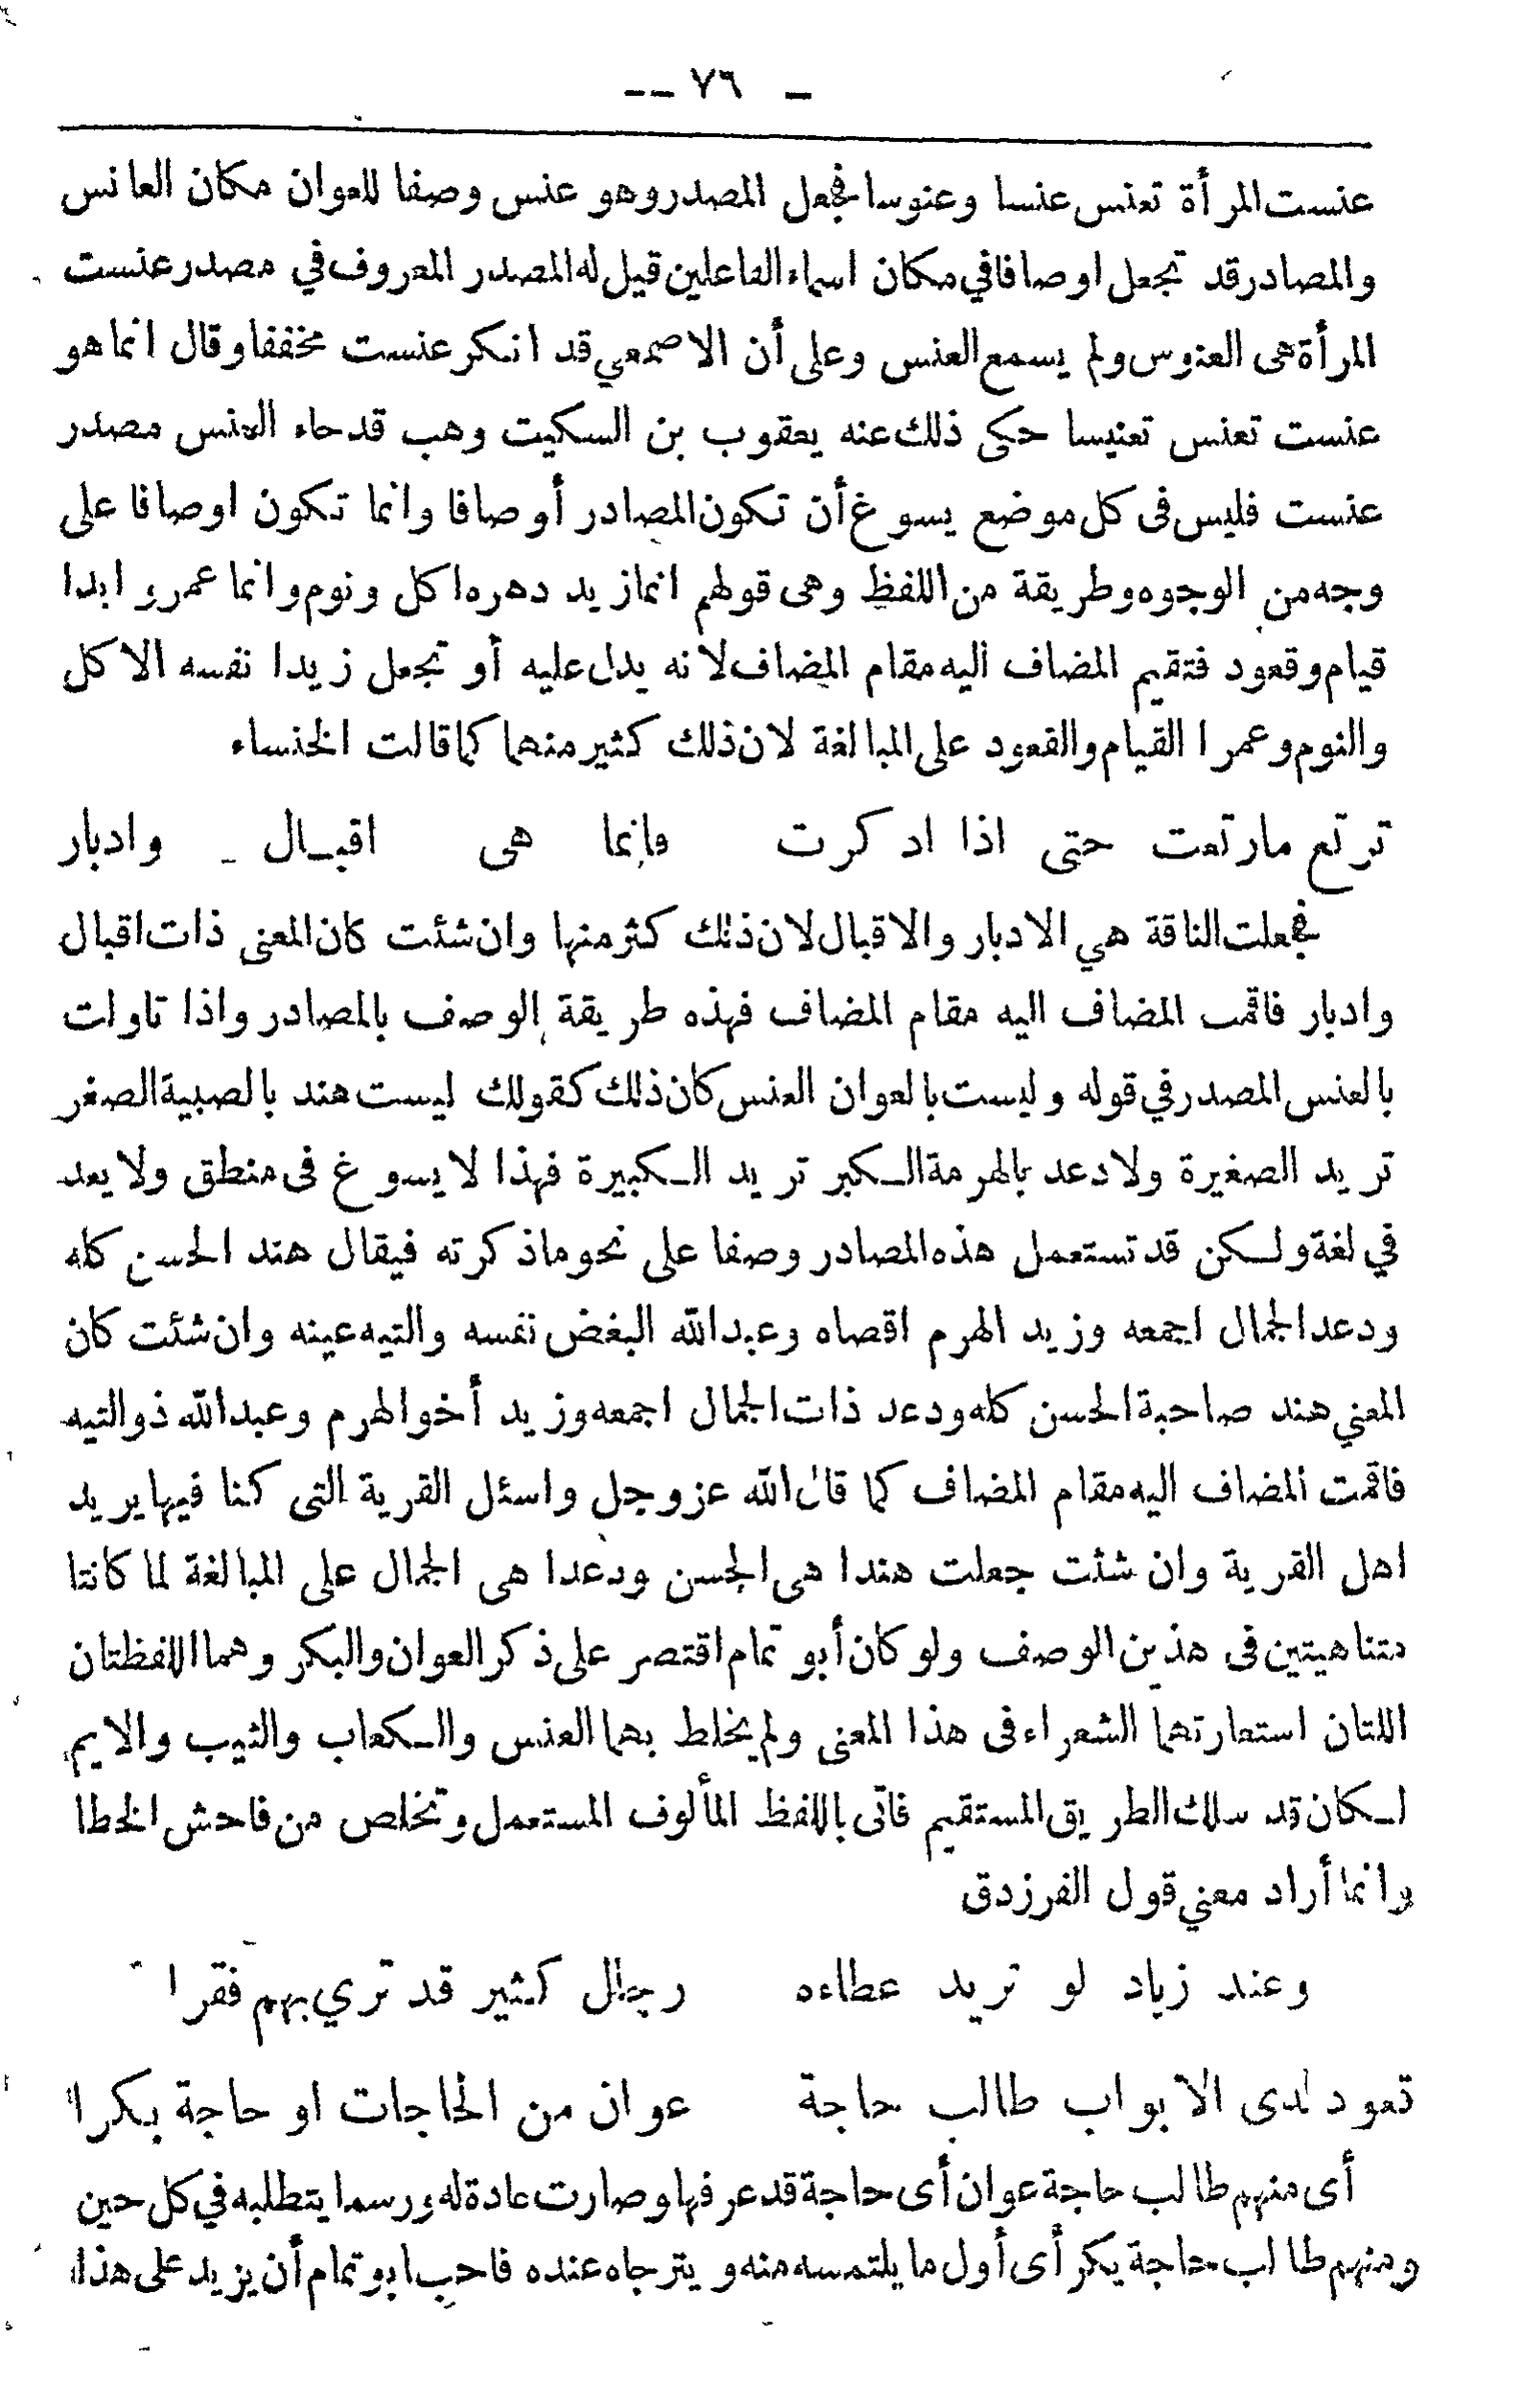 – ٧٦ –
عنست المرأة تعنس عنسا وعنوسا فجعل المصدر وهو عنس وصفا للعوان مكان العانس
والمصادر قد تجعل اوصافا في مكان اسماء الفاعلين قيل له المصدر المعروف في مصدر عنست
المرأة هى العنوس ولم يسمع العنس وعلى أن الاصمعي قد انكر عنست مخففا وقال انما هو
عنست تعنس تعنيسا حكى ذلك عنه يعقوب بن السكيت وهب قد جاء العنس مصدر
عنست فليس فى كل موضع يسوغ أن تكون المصادر أوصافا وانما تكون اوصافا على
وجه من الوجوه وطريقة من اللفظ وهى قولهم انما زيد دهره اكل ونوم وانما عمرو ابدا
قيام وقعود فتقيم المضاف اليه مقام المضاف لانه يدل عليه أو تجعل زيدا نفسه الاكل
والنوم وعمرا القيام والقعود على المبالغة لان ذلك كثير منهما كما قالت الخنساء
ترتع ما رتعت حتى اذا ادكرت فإنما هى اقبال وادبار
فجعلت الناقة هي الادبار والاقبال لان ذلك كثر منها وان شئت كان المعنى ذات اقبال
وادبار فاقمت المضاف اليه مقام المضاف فهذه طريقة الوصف بالمصادر واذا تاولت
بالعنس المصدر في قوله وليست بالعوان العنس كان ذلك كقولك ليست هند بالصبية الصغر
تريد الصغيرة ولا دعد بالهرمة الكبر تريد الكبيرة فهذا لا يسوغ فى منطق ولا يعد
في لغة ولكن قد تستعمل هذه المصادر وصفا على نحو ماذكرته فيقال هند الحسن كله
ودعد الجمال اجمعه وزيد الهرم اقصاه وعبدالله البغض نفسه والتيه عينه وان شئت كان
المعني هند صاحبة الحسن كله ودعد ذات الجمال اجمعه وزيد أخو الهرم وعبدالله ذو التيه
فاقمت المضاف اليه مقام المضاف كما قال الله عز وجل واسئل القرية التى كنا فيها يريد
اهل القرية وان شئت جعلت هندا هى الحسن ودعدا هى الجمال على المبالغة لما كانتا
متناهيتين فى هذين الوصف ولو كان أبو تمام اقتصر على ذكر العوان والبكر وهما اللفظتان
اللتان استعارتهما الشعراء فى هذا المعنى ولم يخلط بهما العنس والكعاب والثيب والايم
لكان قد سلك الطريق المستقيم فاتى باللفظ المألوف المستعمل وتخلص من فاحش الخطا
وانما أراد معني قول الفرزدق
وعند زياد لو تريد عطاءه رجال كثير قد تري بهم فقرا
قعود لدى الابواب طالب حاجة عوان من الحاجات او حاجة بكرا
أى منهم طالب حاجة عوان أى حاجة قد عرفها وصارت عادة له ورسما يتطلبه في كل حين
ومنهم طالب حاجة بكر أى أول ما يلتمسه منه ويترجاه عنده فاحب ابو تمام أن يزيد على هذا